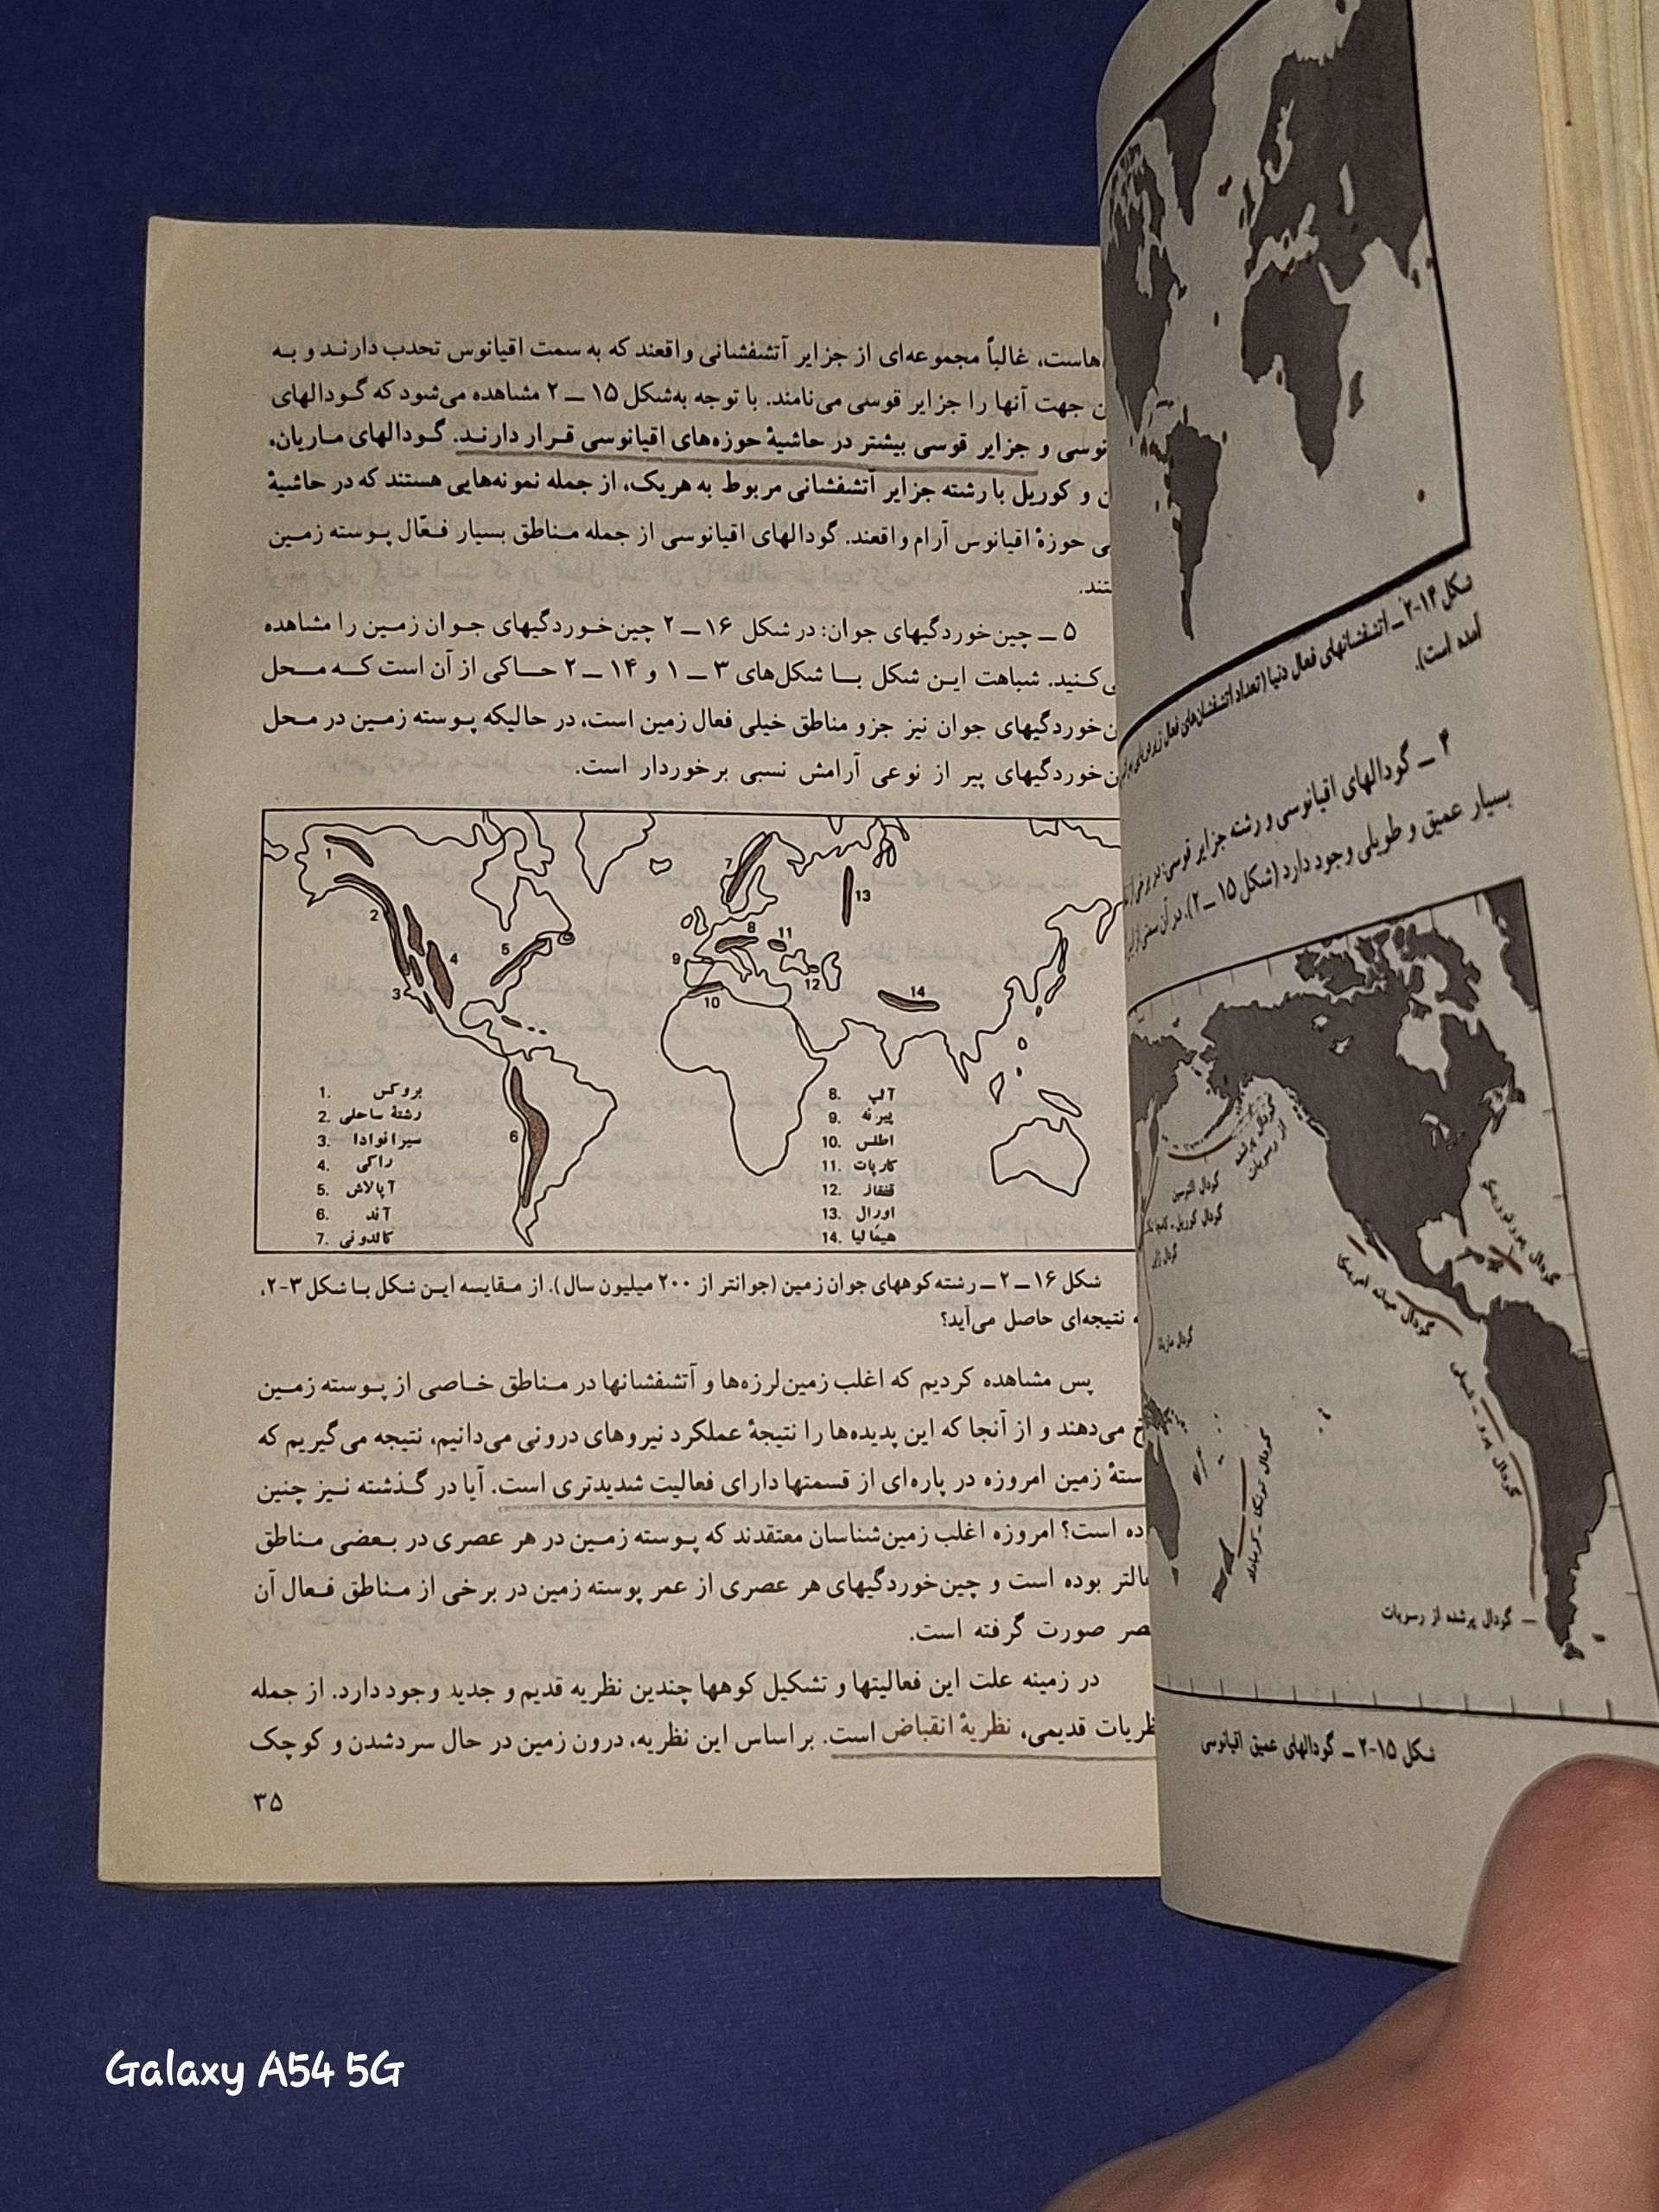 هاست، غالباً مجموعه‌ای از جزایر آتشفشانی واقعند که به سمت اقیانوس تحدب دارند و به
جهت آنها را جزایر قوسی می‌نامند. با توجه به‌شکل ۱۵ ــ ۲ مشاهده می‌شود که گودالهای
و جزایر قوسی بیشتر در حاشیهٔ حوزه‌های اقیانوسی قرار دارند. گودالهای ماریان،
و کوریل با رشته جزایر آتشفشانی مربوط به هریک، از جمله نمونه‌هایی هستند که در حاشیهٔ
حوزهٔ اقیانوس آرام واقعند. گودالهای اقیانوسی از جمله مناطق بسیار فعّال پوسته زمین
۵ ــ چین‌خوردگیهای جوان: در شکل ۱۶ ــ ۲ چین‌خوردگیهای جوان زمین را مشاهده
کنید. شباهت این شکل با شکل‌های ۳ ــ ۱ و ۱۴ ــ ۲ حاکی از آن است که محل
خوردگیهای جوان نیز جزو مناطق خیلی فعال زمین است، در حالیکه پوسته زمین در محل
خوردگیهای پیر از نوعی آرامش نسبی برخوردار است.
1
2
3
4
5
6
7
8
9
10
11
12
13
14
1. بروکس
2. رشتهٔ ساحلی
3. سیرانوادا
4. راکی
5. آپالاش
6. آند
7. کالدونی
8. آلپ
9. پیرنه
10. اطلس
11. کارپات
12. قفقاز
13. اورال
14. هیمالیا
شکل ۱۶ ــ ۲ ــ رشته‌کوههای جوان زمین (جوانتر از ۲۰۰ میلیون سال). از مقایسه این شکل با شکل ۳-۲،
نتیجه‌ای حاصل می‌آید؟
پس مشاهده کردیم که اغلب زمین‌لرزه‌ها و آتشفشانها در مناطق خاصی از پوسته زمین
می‌دهند و از آنجا که این پدیده‌ها را نتیجهٔ عملکرد نیروهای درونی می‌دانیم، نتیجه می‌گیریم که
ستهٔ زمین امروزه در پاره‌ای از قسمتها دارای فعالیت شدیدتری است. آیا در گذشته نیز چنین
ده است؟ امروزه اغلب زمین‌شناسان معتقدند که پوسته زمین در هر عصری در بعضی مناطق
التر بوده است و چین‌خوردگیهای هر عصری از عمر پوسته زمین در برخی از مناطق فعال آن
صر صورت گرفته است.
در زمینه علت این فعالیتها و تشکیل کوهها چندین نظریه قدیم و جدید وجود دارد. از جمله
ظریات قدیمی، نظریهٔ انقباض است. براساس این نظریه، درون زمین در حال سردشدن و کوچک
۳۵
شکل ۱۴-۲ ــ آتشفشانهای فعال دنیا (تعداد آتشفشان‌های فعال زیردریایی
آمده است).
۴ ــ گودالهای اقیانوسی و رشته جزایر قوسی: در برخی از
بسیار عمیق و طویلی وجود دارد (شکل ۱۵ ــ ۲). در آن
گودال پرشده
از رسوبات
گودال آلوسین
گودال کوریل ـ
گودال ژاپن
گودال ماریانا
گودال پورتوریکو
گودال میانه امریکا
گودال پرو ـ شیلی
گودال تونگا ـ کرمادک
گودال پرشده از رسوبات
شکل ۱۵-۲ ــ گودالهای عمیق اقیانوسی
Galaxy A54 5G